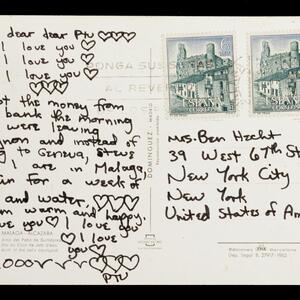 dear dear PTU
I love you
I love you
I love you
ot the money from
bank the morning
were leaving
gnon and instead of
g to Geneva, Steve
I are in Malaga,
in for a week of
and water.
m warm and happy.
love you I love you
I love
you
PTU
MALAGA - ALCAZABA
DOMINGUEZ - MADRID
BONGA SUS SE
AL REVER
ESPAÑA
CORREOS
ESPAÑA
CORREOS
Mrs. Ben Hecht
39 West 67th St
New York City
New York
United States of Am